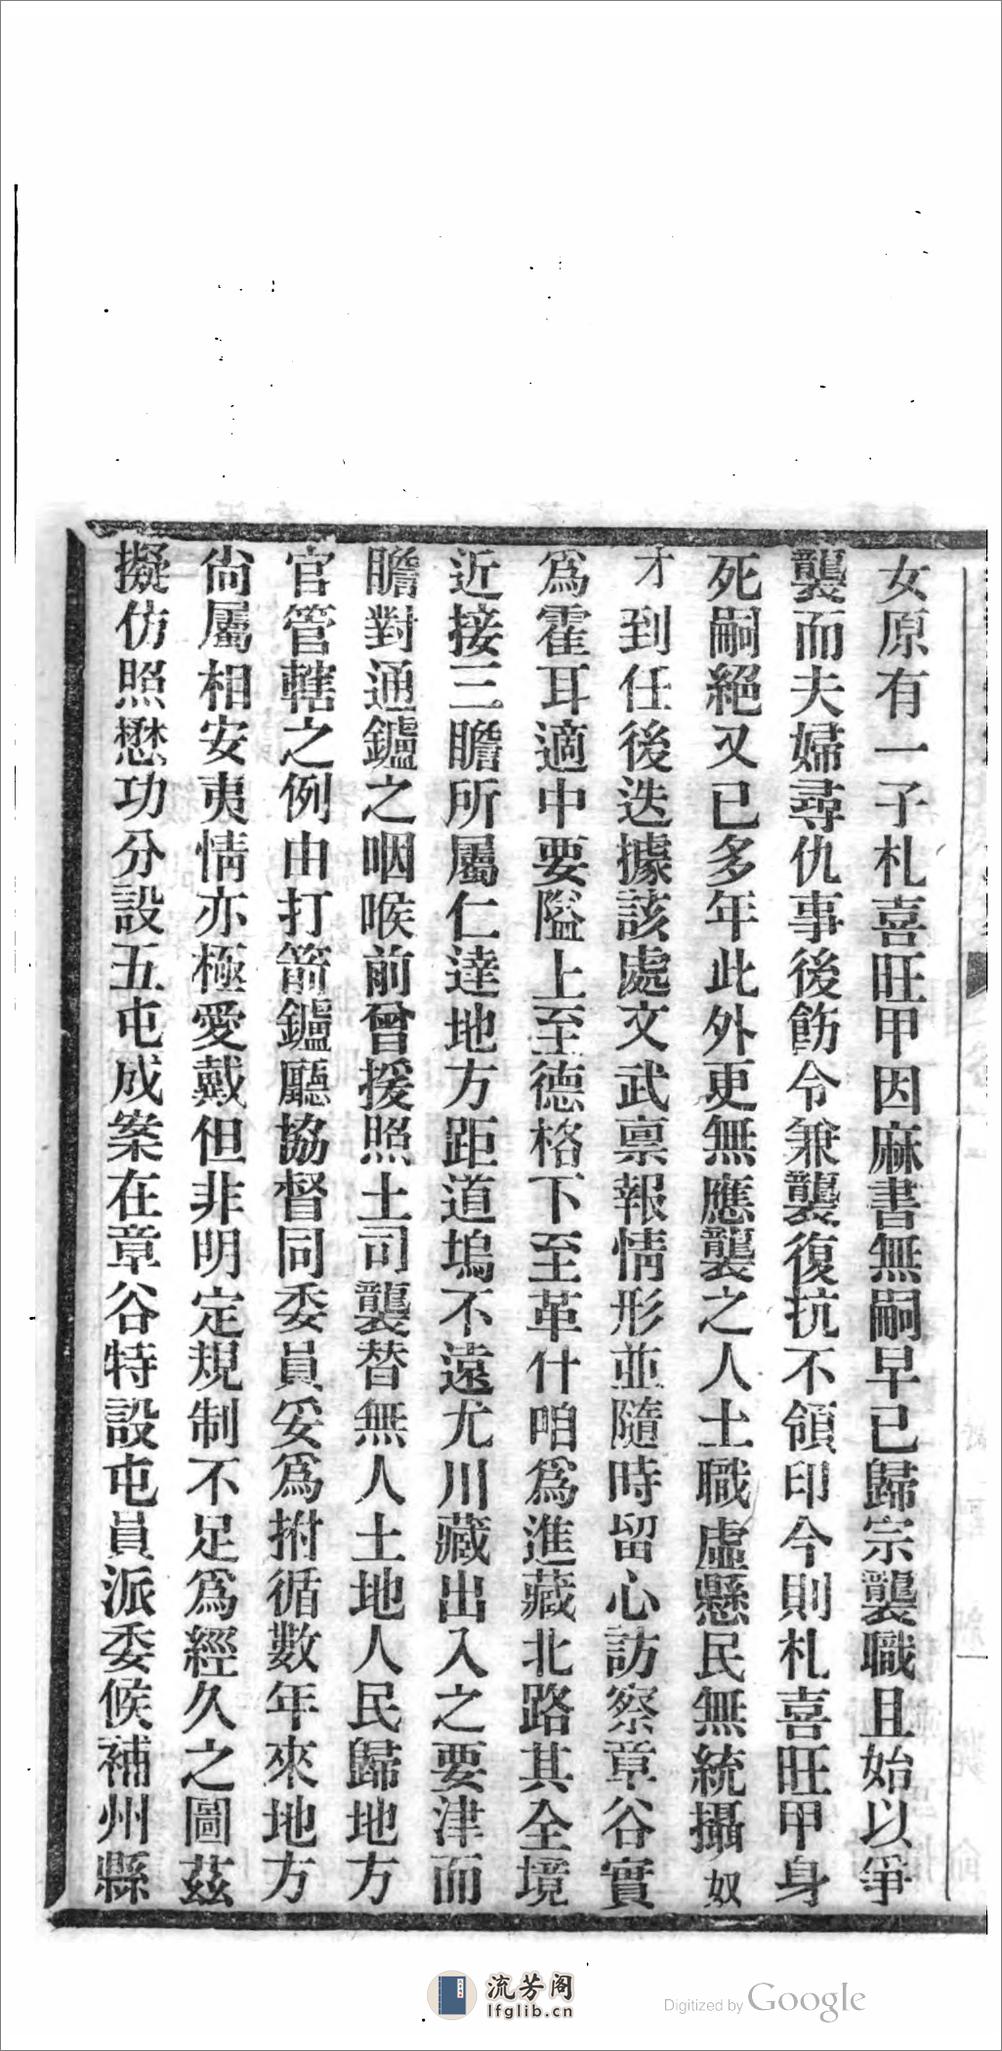 女原有一子札喜旺甲因麻書無嗣早已歸宗襲職且始以爭
襲而夫婦尋仇事後飭令兼襲復抗不領印今則札喜旺甲身
死嗣絕又已多年此外更無應襲之人土職虛懸民無統攝奴
才到任後迭據該處文武禀報情形並隨時留心訪察章谷實
爲霍耳適中要隘上至德格下至革什咱爲進藏北路其全境
近接三瞻所屬仁達地方距道塢不遠尤川藏出入之要津而
瞻對通鑪之咽喉前曾援照土司襲替無人土地人民歸地方
官管轄之例由打箭鑪廳協督同委員妥爲拊循數年來地方
尙屬相安夷情亦極愛戴但非明定規制不足爲經久之圖茲
擬仿照懋功分設五屯成案在章谷特設屯員派委候補州縣
流芳阁
lfglib.cn
Digitized by Google